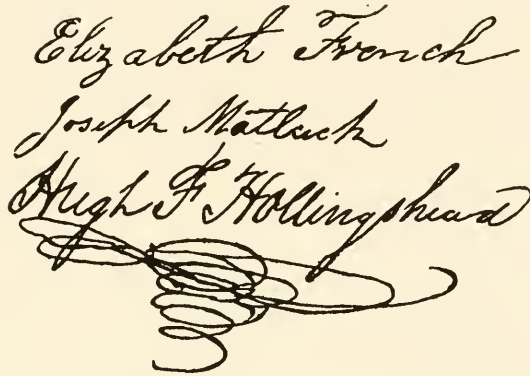 Elizabeth French
Joseph Matlack
Hugh F Hollingshead